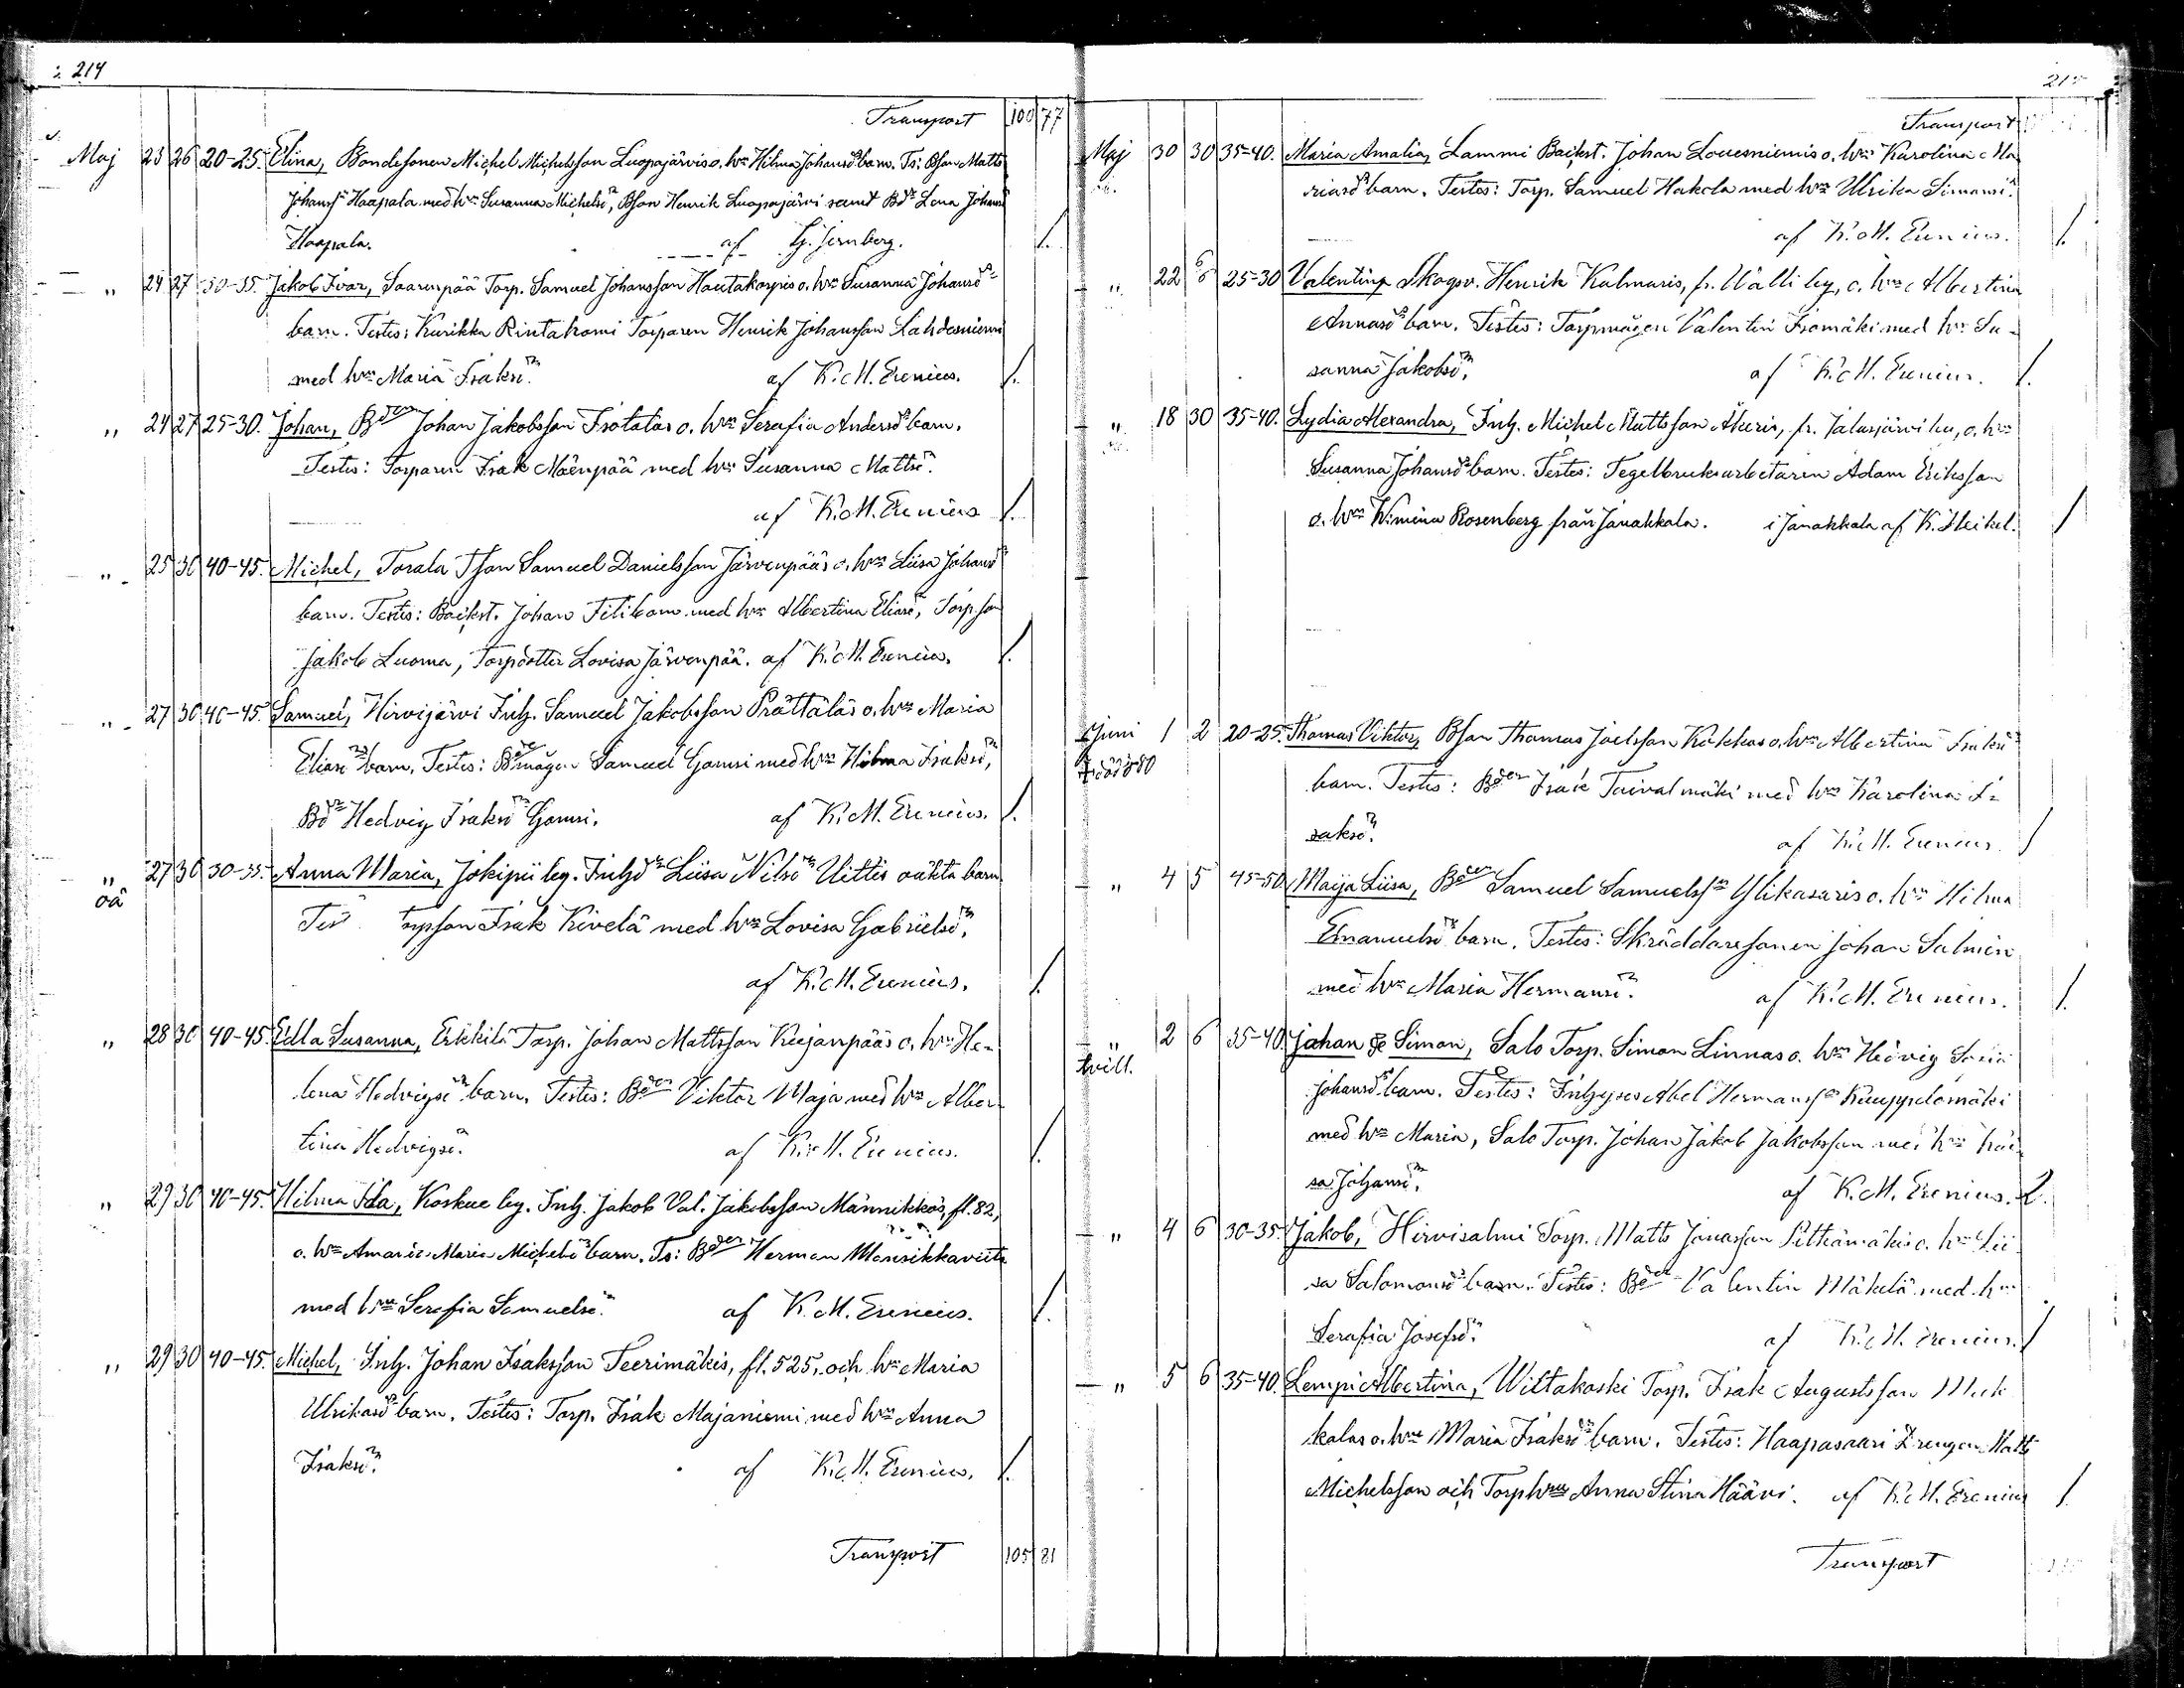 214
Transport 100 77
Maj 23 26 20-25. Elina, Bondesonen Michel Michelsson Luopajärvis o. hrs Hilma Johansdr barn. Ts: Bson Matts
Johanss Haapala med hrs Susanna Michelsdr, Bson Henrik Luopajärvi samt Bdr Lena Johansdr
Haapala. af G. Jernberg. 1.
" 24 27 30-35. Jakob Ivar, Saarenpää Torp. Samuel Johansson Hautakorpis o. hrs Susanna Johansdr
barn. Testes: Kurikka Rintakomi Torparen Henrik Johansson Lahdesniemi
med hrs Maria Isaksdr. af K. M. Erenius. 1.
" 24 27 25-30. Johan, Bden Johan Jakobsson Isotalas o. hrs Serafia Andersdr barn.
Testes: Torparen Isak Mäenpää med hrs Susanna Mattsdr.
af K. M. Erenius 1.
" 25 30 40-45. Michel, Torala Tson Samuel Danielsson Järvenpääs o. hrs Liisa Johansdr
barn. Testes: Backst. Johan med hrs Albertina Eliasdr, Torpson
Jakob Luoma, Torpdotter Lovisa Järvenpää. af K. M. Erenius. 1.
" 27 30 40-45. Samuel, Hirvijärvi Inh. Samuel Jakobsson Prättäläs o. hrs Maria
Eliasdr barn. Testes: Bdemågen Samuel Gamsi med hrs Hilma Isaksdr,
Bdr Hedvig Isaksdr Gamsi. af K. M. Erenius. 1.
" 27 30 30-35. Anna Maria, Jokipii leg. Inhdr Liisa Nilsdr Uittis oäkta barn
oä
Tes Torpson Isak Kivelä med hrs Lovisa Gabrielsdr.
af K. M. Erenius. 1.
" 28 30 40-45. Edla Susanna, Erkkilä Torp. Johan Mattsson Keejanpääs o. hrs He-
lena Hedvigsdr barn. Testes: Bden Viktor Maja med hrs Alber-
tina Hedvigsdr. af K. M. Erenius. 1.
" 29 30 40-45. Hilma Ida, Koskue leg. Inh. Jakob Val. Jakobsson Männikkös, fl. 82,
o. hrs Maria Michelsdr barn. Ts: Bden Herman Mansikkaviita
med hrs Serafia Samuelsdr. af K. M. Erenius. 1.
" 29 30 40-45. Michel, Inh. Johan Isaksson Teerimäkis, fl. 525, och hrs Maria
Ulrikasdr barn. Testes: Torp. Isak Majaniemi med hrs Anna
Isaksdr. af K. M. Erenius. 1.
Transport 105 81
215
Transport
Maj 30 30 35-40. Maria Amalia, Lammi Backst. Johan Louesniemis o. hrs Karolina Ma-
riasdr barn. Testes: Torp. Samuel Hakola med hrs Ulrika Simonsdr.
af K. M. Erenius. 1.
" 22 6/6 25-30 Valentin, Skogsv. Henrik Kalmaris, fr. Wälli by, o. hrs Albertina
Annasdr barn. Testes: Torpmågen Valentin Isomäki med hrs Su-
sanna Jakobsdr. af K. M. Erenius. 1.
" 18 30 35-40. Lydia Alexandra, Inh. Michel Mattsson Äkeris, fr. Jalasjärvi, o. hrs
Susanna Johansdr barn. Testes: Tegelbruksarbetaren Adam Eriksson
o. hrs Wimina Rosenberg från Janakkala. i Janakkala af K. Heikel. 1
Juni 1 2 20-25. Thomas Viktor, Bson Thomas Joelsson Kokkos o. hrs Albertina Isaksdr
barn. Testes: Bden Isak Taivalmäki med hrs Karolina I-
saksdr. af K. M. Erenius. 1
" 4 5 45-50 Maija Liisa, Bden Samuel Samuelssn Ylikasaris o. hrs Hilma
Emanuelsdr barn. Testes: Skräddaresonen Johan Salmén
med hrs Maria Hermansdr. af K. M. Erenius. 1.
" 2 6 35-40. Johan & Simon, Salo Torp. Simon Linnas o. hrs Hedvig Sofia
tvill.
Johansdr barn. Testes: Inhyses Abel Hermanssn Kuuppelomäki
med hrs Maria, Salo Torp. Johan Jakob Jakobsson med hrs
sa Johansdr. af K. M. Erenius. 2.
" 4 6 30-35. Jakob, Hirvisalmi Torp. Matts Jonasson Pitkämäkis o. hrs Lii-
sa Salomonsdr barn. Testes: Bden Valentin Mäkelä med hrs
Serafia Josefsdr. af K. M. Erenius. 1
" 5 6 35-40. Lempi Albertina, Wiitakoski Torp. Isak Augustsson Muk-
kalas o. hrs Maria Isaksdr barn. Testes: Haapasaari Drengen Matts
Michelsson och Torphru Anna Stina Häävi. af K. M. Erenius 1.
Transport